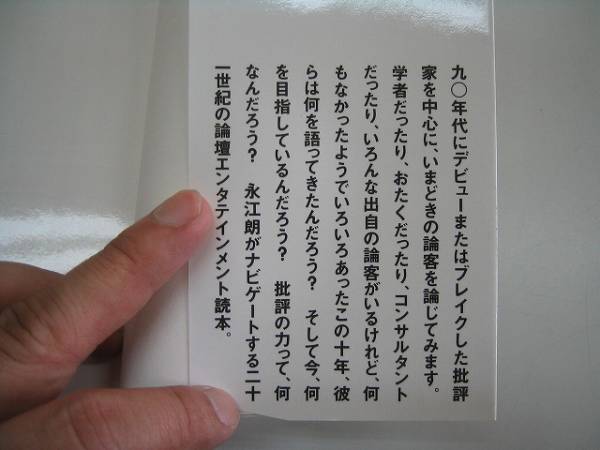 九〇年代にデビューまたはブレイクした批評
家を中心に、いまどきの論客を論じてみます。
学者だったり、おたくだったり、コンサルタント
だったり、いろんな出自の論客がいるけれど、何
もなかったようでいろいろあったこの十年、彼
らは何を語ってきたんだろう？　そして今、何
を目指しているんだろう？　批評の力って、何
なんだろう？　永江朗がナビゲートする二十
一世紀の論壇エンタテインメント読本。